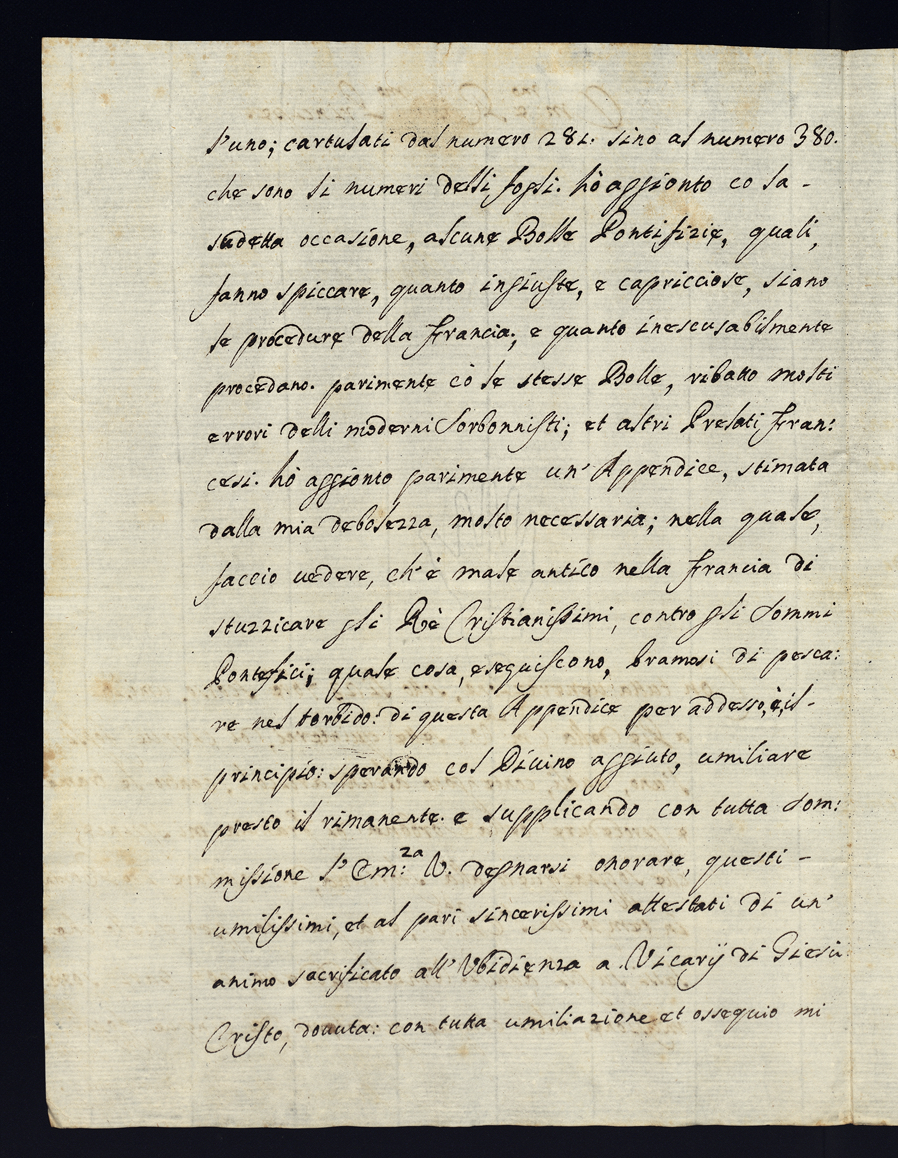 l'uno; cartulati dal numero 281. sino al numero 380.
che sono li numeri delli fogli. hò aggionto cò la -
sudetta occasione, alcune Bolle Pontifizie, quali,
fanno spiccare, quanto ingiuste, e capricciose, siano
le procedure della francia; e quanto inescusabilmente
procedano. parimente cò le stesse Bolle, ribatto molti
errori delli moderni Sorbonnisti; et altri Prelati fran:
cesi. hò aggionto parimente un' Appendice, stimata
dalla mia debolezza, molto necessaria; nella quale,
faccio uedere, ch'è male antico nella francia di
stuzzicare gli Rè Cristianissimi, contro gli Sommi
Pontefici; quale cosa, eseguiscono, bramosi di pesca:
re nel torbido: di questa Appendice per addesso, è, il -
principio: sperando col Divino aggiuto, umiliare
presto il rimanente. e supplicando con tutta som:
missione l'Em:za V. degnarsi onorare, questi -
umilissimi, et al pari sincerissimi attestati di un'
animo sacrificato all'Ubidienza a Vicarij di Giesù
Cristo, douuta: con tutta umiliazione et ossequio mi